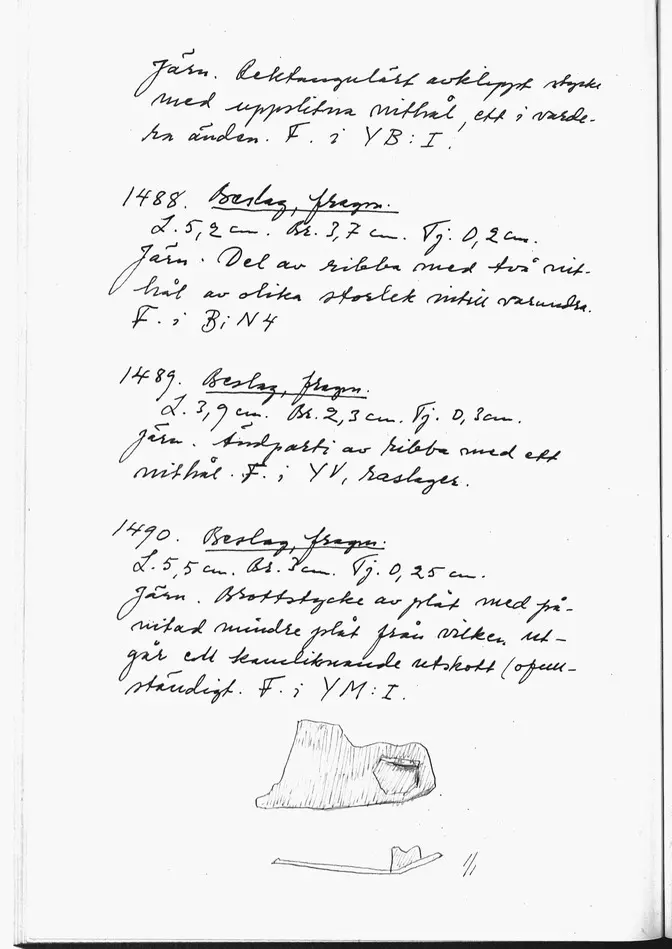 Järn. Rektangulärt avklippt stycke
med uppslitna nithål, ett i varde-
ra änden. F. i YB:I.
1488. Beslag, fragm.
L. 5,2 cm. Br. 3,7 cm. Tj. 0,2 cm.
Järn. Del av ribba med två nit-
hål av olika storlek intill varandra.
F. i B; N4
1489. Beslag, fragm.
L. 3,9 cm. Br. 2,3 cm. Tj. 0,3 cm.
Järn. Ändparti av ribba med ett
nithål. F. i YV, raslager.
1490. Beslag, fragm.
L. 5,5 cm. Br. 3 cm. Tj. 0,25 cm.
Järn. Brottstycke av plåt med på-
nitad mindre plåt från vilken ut-
går ett kamliknande utskott (ofull-
ständigt. F. i YM:I.
1/1